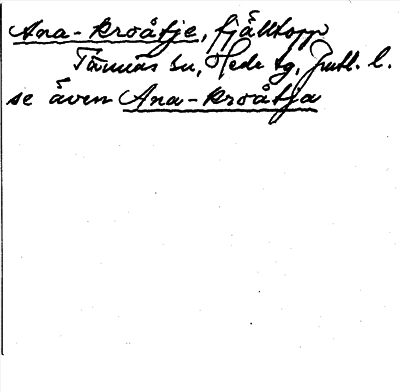 Ana-kroåtje, fjälltopp
Tännäs sn, Hede tg, Jmtl. l.
se även Ana-kroåtja